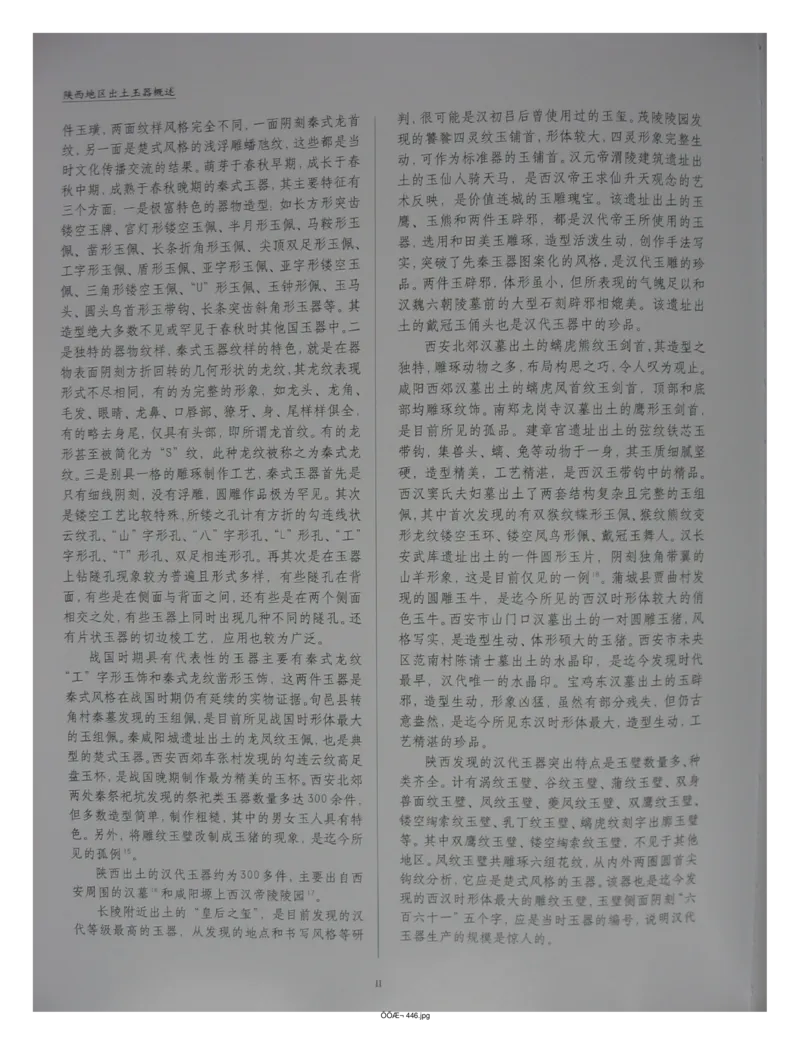 陕西地区出土玉器概述
件玉璜，两面纹样风格完全不同，一面阴刻秦式龙首
纹，另一面是楚式风格的浅浮雕蟠虺纹，这些都是当
时文化传播交流的结果。萌芽于春秋早期，成长于春
秋中期，成熟于春秋晚期的秦式玉器，其主要特征有
三个方面：一是极富特色的器物造型：如长方形突齿
镂空玉牌、宫灯形镂空玉佩、半月形玉佩、马鞍形玉
佩、凿形玉佩、长条折角形玉佩、尖顶双足形玉佩、
工字形玉佩、盾形玉佩、亚字形玉佩、亚字形镂空玉
佩、三角形镂空玉佩、“U”形玉佩、玉钟形佩、玉马
头、圆头鸟首形玉带钩、长条突齿斜角形玉器等。其
造型绝大多数不见或罕见于春秋时其他国玉器中。二
是独特的器物纹样，秦式玉器纹样的特色，就是在器
物表面阴刻方折回转的几何形状的龙纹，其龙纹表现
形式不尽相同，有的为完整的形象，如龙头、龙角、
毛发、眼睛、龙鼻、口唇部、獠牙、身、尾样样俱全，
有的略去身尾，仅具有头部，即所谓龙首纹。有的龙
形甚至被简化为“S”纹，此种龙纹被称之为秦式龙
纹。三是别具一格的雕琢制作工艺，秦式玉器首先是
只有细线阴刻，没有浮雕，圆雕作品极为罕见。其次
是镂空工艺比较特殊，所镂之孔计有方折的勾连线状
云纹孔、“山”字形孔、“八”字形孔、“L”形孔、“工”
字形孔、“T”形孔、双足相连形孔。再其次是在玉器
上钻隧孔现象较为普遍且形式多样，有些隧孔在背
面，有些是在侧面与背面之间，还有些是在两个侧面
相交之处，有些玉器上同时出现几种不同的隧孔。还
有片状玉器的切边棱工艺，应用也较为广泛。
战国时期具有代表性的玉器主要有秦式龙纹
“工”字形玉饰和秦式龙纹凿形玉饰，这两件玉器是
秦式风格在战国时期仍有延续的实物证据。旬邑县转
角村秦墓发现的玉组佩，是目前所见战国时形体最大
的玉组佩。秦咸阳城遗址出土的龙凤纹玉佩，也是典
型的楚式玉器。西安西郊车张村发现的勾连云纹高足
盘玉杯，是战国晚期制作最为精美的玉杯。西安北郊
两处秦祭祀坑发现的祭祀类玉器数量多达300余件，
但多数造型简单，制作粗糙，其中的男女玉人具有特
色。另外，将雕纹玉璧改制成玉猪的现象，是迄今所
见的孤例15。
陕西出土的汉代玉器约为300多件，主要出自西
安周围的汉墓16和咸阳塬上西汉帝陵陵园17。
长陵附近出土的“皇后之玺”，是目前发现的汉
代等级最高的玉器，从发现的地点和书写风格等研
判，很可能是汉初吕后曾使用过的玉玺。茂陵陵园发
现的饕餮四灵纹玉铺首，形体较大，四灵形象完整生
动，可作为标准器的玉铺首。汉元帝渭陵建筑遗址出
土的玉仙人骑天马，是西汉帝王求仙升天观念的艺
术反映，是价值连城的玉雕瑰宝。该遗址出土的玉
鹰、玉熊和两件玉辟邪，都是汉代帝王所使用的玉
器，选用和田美玉雕琢，造型活泼生动，创作手法写
实，突破了先秦玉器图案化的风格，是汉代玉雕的珍
品。两件玉辟邪，体形虽小，但所表现的气魄足以和
汉魏六朝陵墓前的大型石刻辟邪相媲美。该遗址出
土的戴冠玉俑头也是汉代玉器中的珍品。
西安北郊汉墓出土的螭虎熊纹玉剑首，其造型之
独特，雕琢动物之多，布局构思之巧，令人叹为观止。
咸阳西郊汉墓出土的螭虎凤首纹玉剑首，顶部和底
部均雕琢纹饰。南郑龙岗寺汉墓出土的鹰形玉剑首，
是目前所见的孤品。建章宫遗址出土的弦纹铁芯玉
带钩，集兽头、螭、兔等动物于一身，其玉质细腻坚
硬，造型精美，工艺精湛，是西汉玉带钩中的精品。
西汉窦氏夫妇墓出土了两套结构复杂且完整的玉组
佩，其中首次发现的有双猴纹楪形玉佩、猴纹熊纹变
形龙纹镂空玉环、镂空凤鸟形佩、戴冠玉舞人。汉长
安武库遗址出土的一件圆形玉片，阴刻独角带翼的
山羊形象，这是目前仅见的一例18。蒲城县贾曲村发
现的圆雕玉牛，是迄今所见的西汉时形体较大的俏
色玉牛。西安市山门口汉墓出土的一对圆雕玉猪，风
格写实，是造型生动、体形硕大的玉猪。西安市未央
区范南村陈请士墓出土的水晶印，是迄今发现时代
最早，汉代唯一的水晶印。宝鸡东汉墓出土的玉辟
邪，造型生动，形象凶猛，虽然有部分残失，但仍古
意盎然，是迄今所见东汉时形体最大，造型生动，工
艺精湛的珍品。
陕西发现的汉代玉器突出特点是玉璧数量多、种
类齐全。计有涡纹玉璧、谷纹玉璧、蒲纹玉璧、双身
兽面纹玉璧、凤纹玉璧、夔凤纹玉璧、双鹰纹玉璧、
镂空绹索纹玉璧、乳丁纹玉璧、螭虎纹刻字出廓玉璧
等。其中双鹰纹玉璧、镂空绹索纹玉璧，不见于其他
地区。凤纹玉璧共雕琢六组花纹，从内外两圈圆首尖
钩纹分析，它应是楚式风格的玉器。该器也是迄今发
现的西汉时形体最大的雕纹玉璧，玉璧侧面阴刻“六
百六十一”五个字，应是当时玉器的编号，说明汉代
玉器生产的规模是惊人的。
11
ÕÕÆ¬ 446.jpg